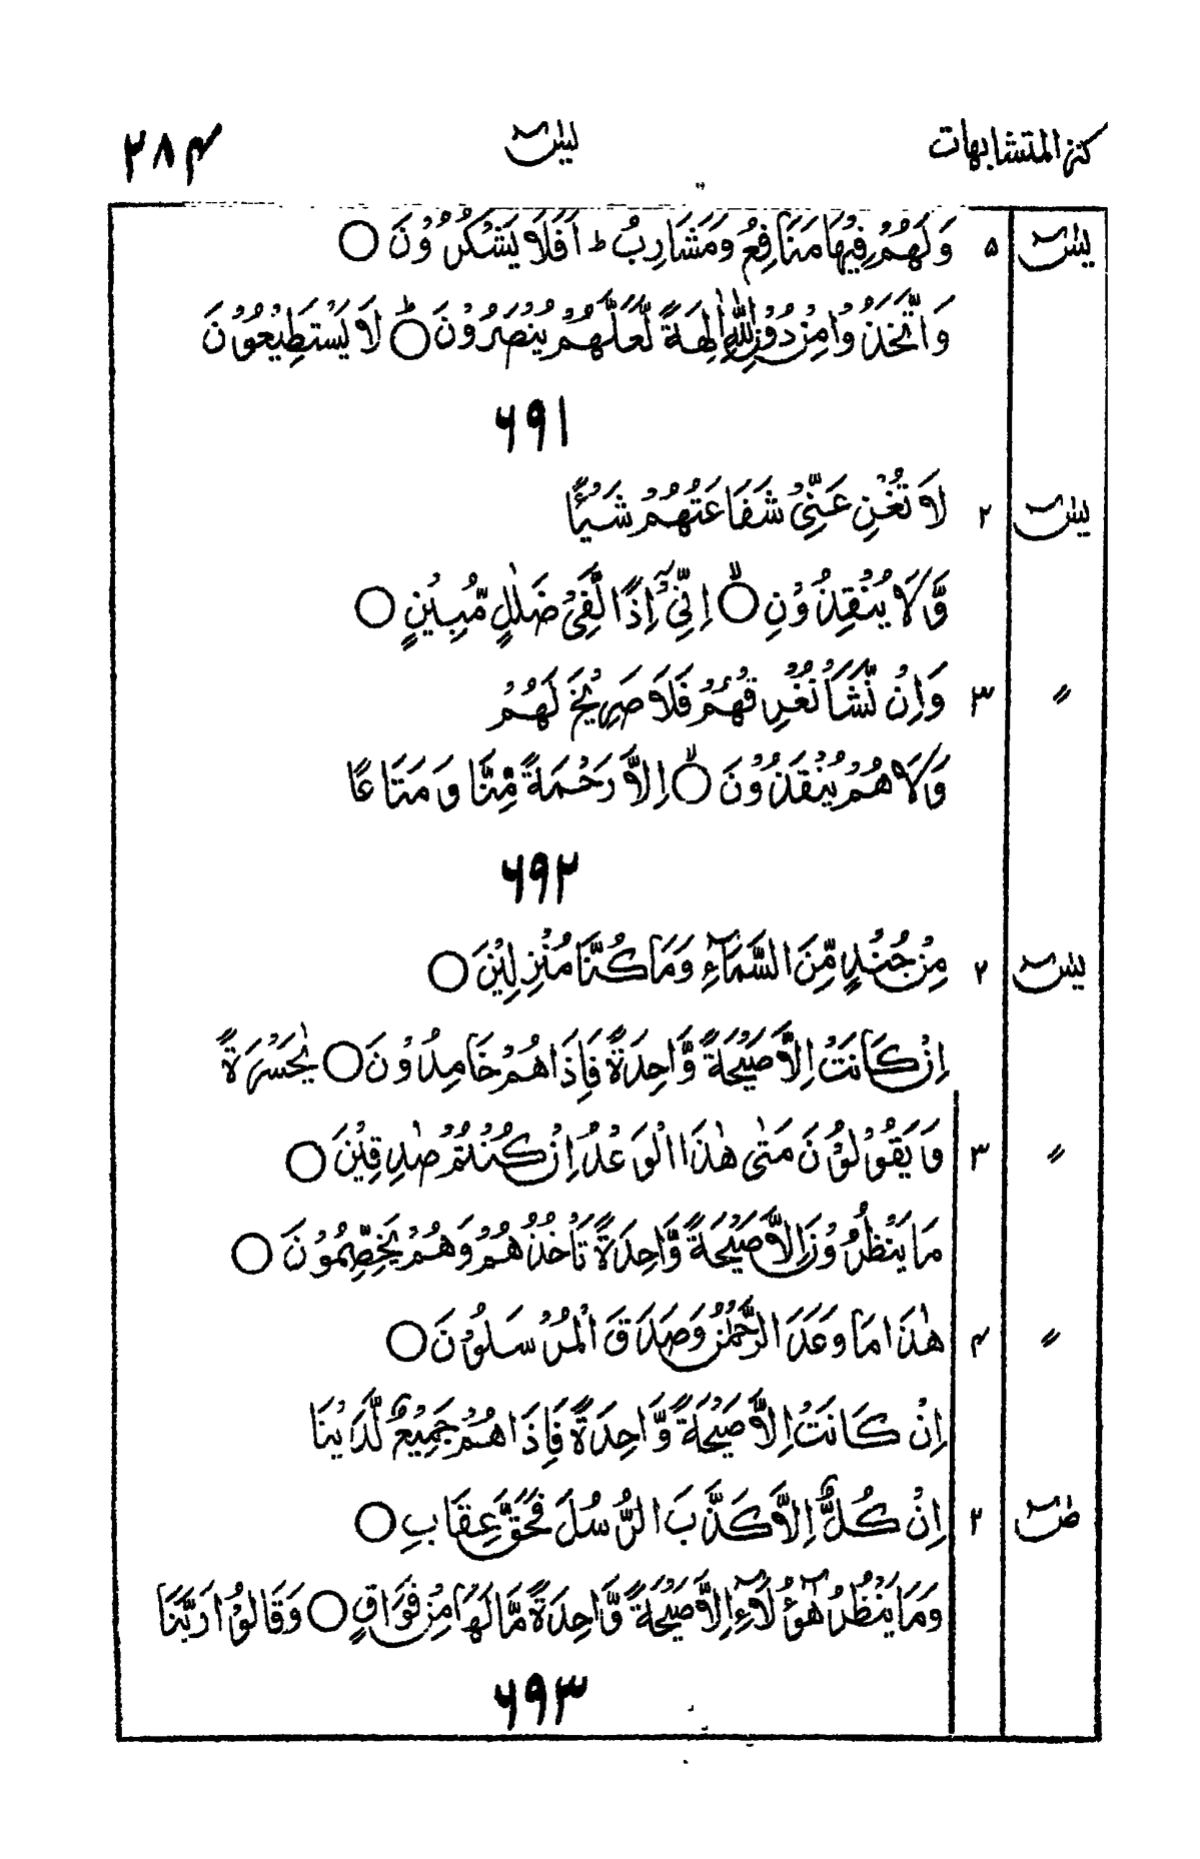 كنز المتشابهات يٰسٓ ۲۸۴
يٰسٓ ۵ وَلَهُمْ فِيْهَا مَنَافِعُ وَمَشَارِبُ ؕ اَفَلَا يَشْكُرُوْنَ ○
وَاتَّخَذُوْا مِنْ دُوْنِ اللّٰهِ اٰلِهَةً لَّعَلَّهُمْ يُنْصَرُوْنَ ○ؕ لَا يَسْتَطِيْعُوْنَ
۶۹۱
يٰسٓ ۲ لَا تُغْنِ عَنِّىْ شَفَاعَتُهُمْ شَيْـًٔا
وَّلَا يُنْقِذُوْنِ ○ۙ اِنِّىْٓ اِذًا لَّفِىْ ضَلٰلٍ مُّبِيْنٍ ○
〃 ۳ وَاِنْ نَّشَاْ نُغْرِقْهُمْ فَلَا صَرِيْخَ لَهُمْ
وَلَا هُمْ يُنْقَذُوْنَ ○ۙ اِلَّا رَحْمَةً مِّنَّا وَمَتَاعًا
۶۹۲
يٰسٓ ۲ مِنْ جُنْدٍ مِّنَ السَّمَآءِ وَمَا كُنَّا مُنْزِلِيْنَ ○
اِنْ كَانَتْ اِلَّا صَيْحَةً وَّاحِدَةً فَاِذَا هُمْ خَامِدُوْنَ ○ يٰحَسْرَةً
〃 ۳ وَيَقُوْلُوْنَ مَتٰى هٰذَا الْوَعْدُ اِنْ كُنْتُمْ صٰدِقِيْنَ ○
مَا يَنْظُرُوْنَ اِلَّا صَيْحَةً وَّاحِدَةً تَاْخُذُهُمْ وَهُمْ يَخِصِّمُوْنَ ○
〃 ۴ هٰذَا مَا وَعَدَ الرَّحْمٰنُ وَصَدَقَ الْمُرْسَلُوْنَ ○
اِنْ كَانَتْ اِلَّا صَيْحَةً وَّاحِدَةً فَاِذَا هُمْ جَمِيْعٌ لَّدَيْنَا
صٓ ۲ اِنْ كُلٌّ اِلَّا كَذَّبَ الرُّسُلَ فَحَقَّ عِقَابِ ○
وَمَا يَنْظُرُ هٰٓؤُلَآءِ اِلَّا صَيْحَةً وَّاحِدَةً مَّا لَهَا مِنْ فَوَاقٍ ○ وَقَالُوْا رَبَّنَا
۶۹۳